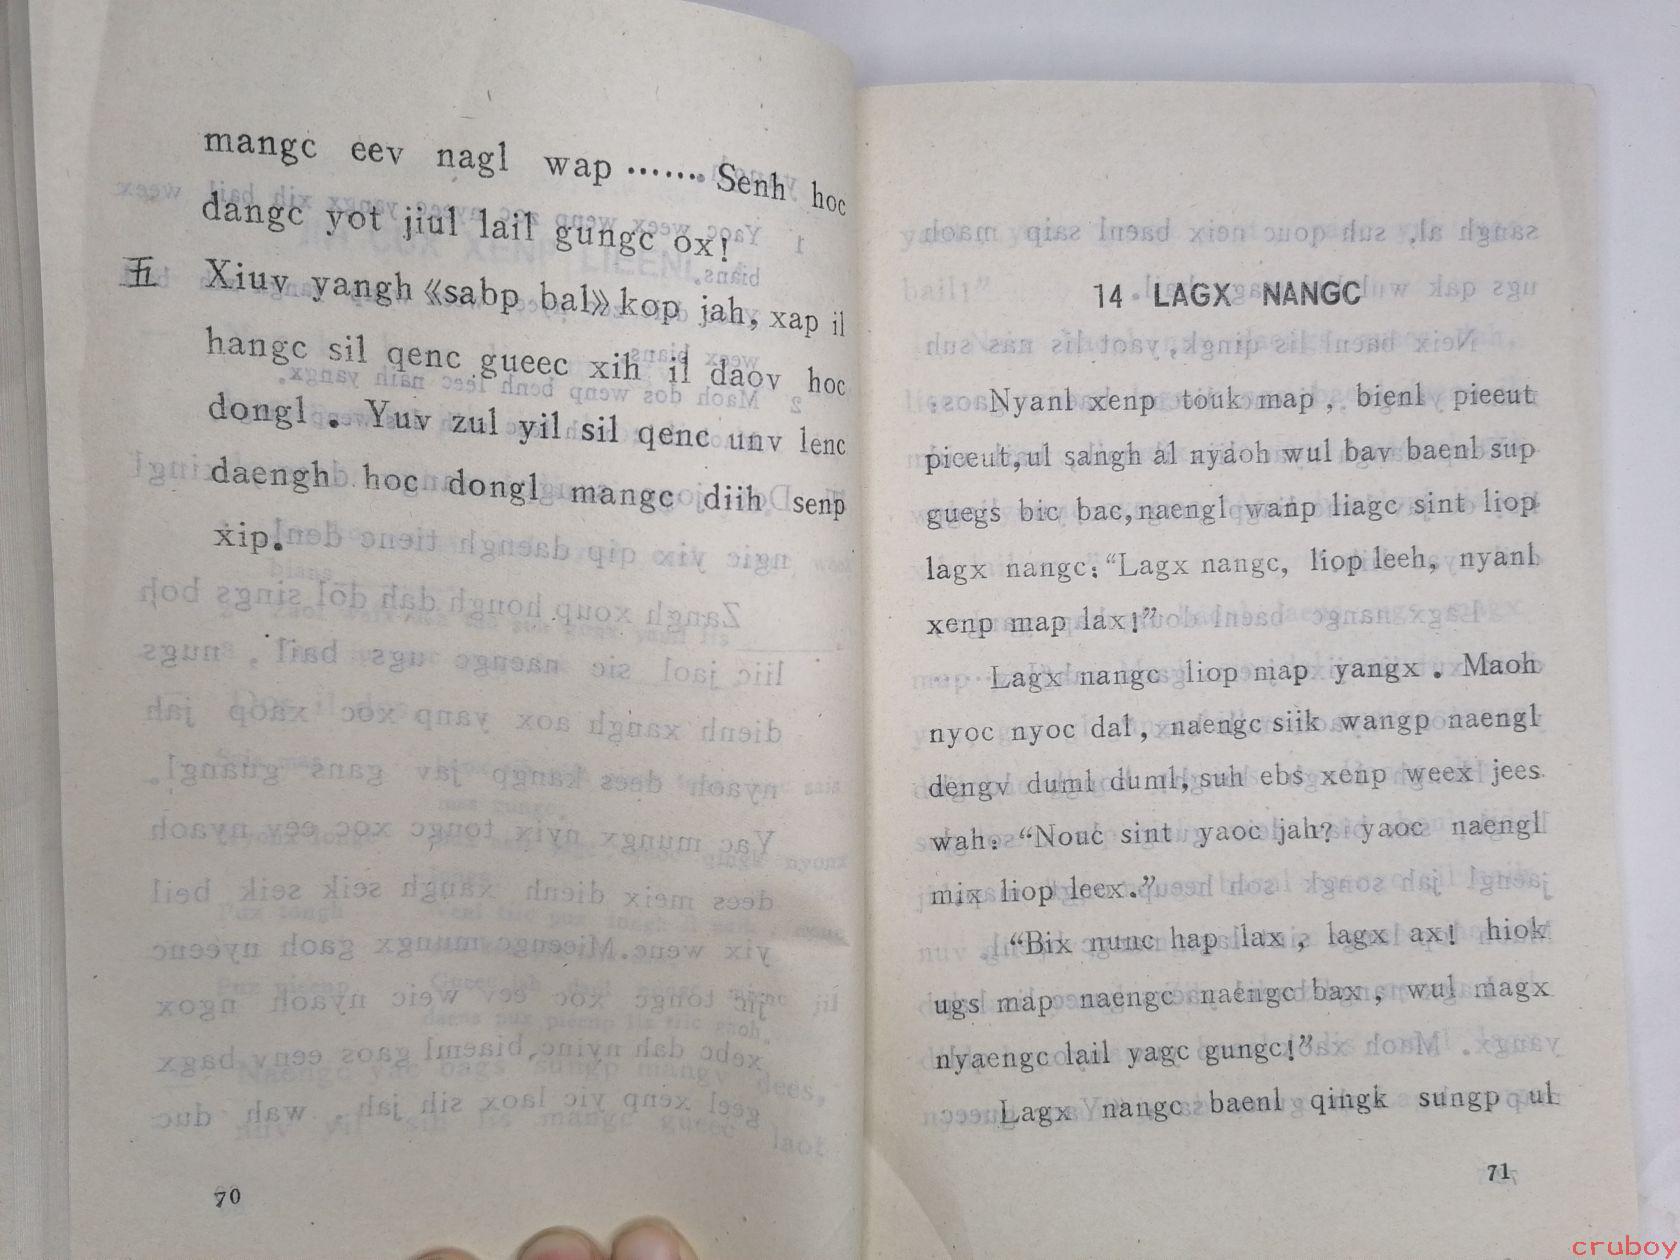 mangc eev nagl wap ······· Senh hoc
dangc yot jiul lail gungc ox!
五 Xiuv yangh《sabp bal》kop jah, xap il
hangc sil qenc gueec xih il daov hoc
dongl . Yuv zul yil sil qenc unv lenc
daengh hoc dongl mangc diih senp
xip.
70
14 LAGX NANGC
Nyanl xenp touk map, bienl pieeut
pieeut, ul sangh al nyaoh wul bav baenl sup
guegs bic bac, naengl wanp liagc sint liop
lagx nangc: “Lagx nangc, liop leeh, nyanl
xenp map lax!”
Lagx nangc liop map yangx. Maoh
nyoc nyoc dal, naengc siik wangp naengl
dengv duml duml, suh ebs xenp weex jees
wah: “Nouc sint yaoc jah? yaoc naengl
mix liop leex.”
“Bix nunc hap lax, lagx ax! hiok
ugs map naengc naengc bax, wul magx
nyaengc lail yagc gungc!”
Lagx nangc baenl qingk sungp ul
71
cruboy